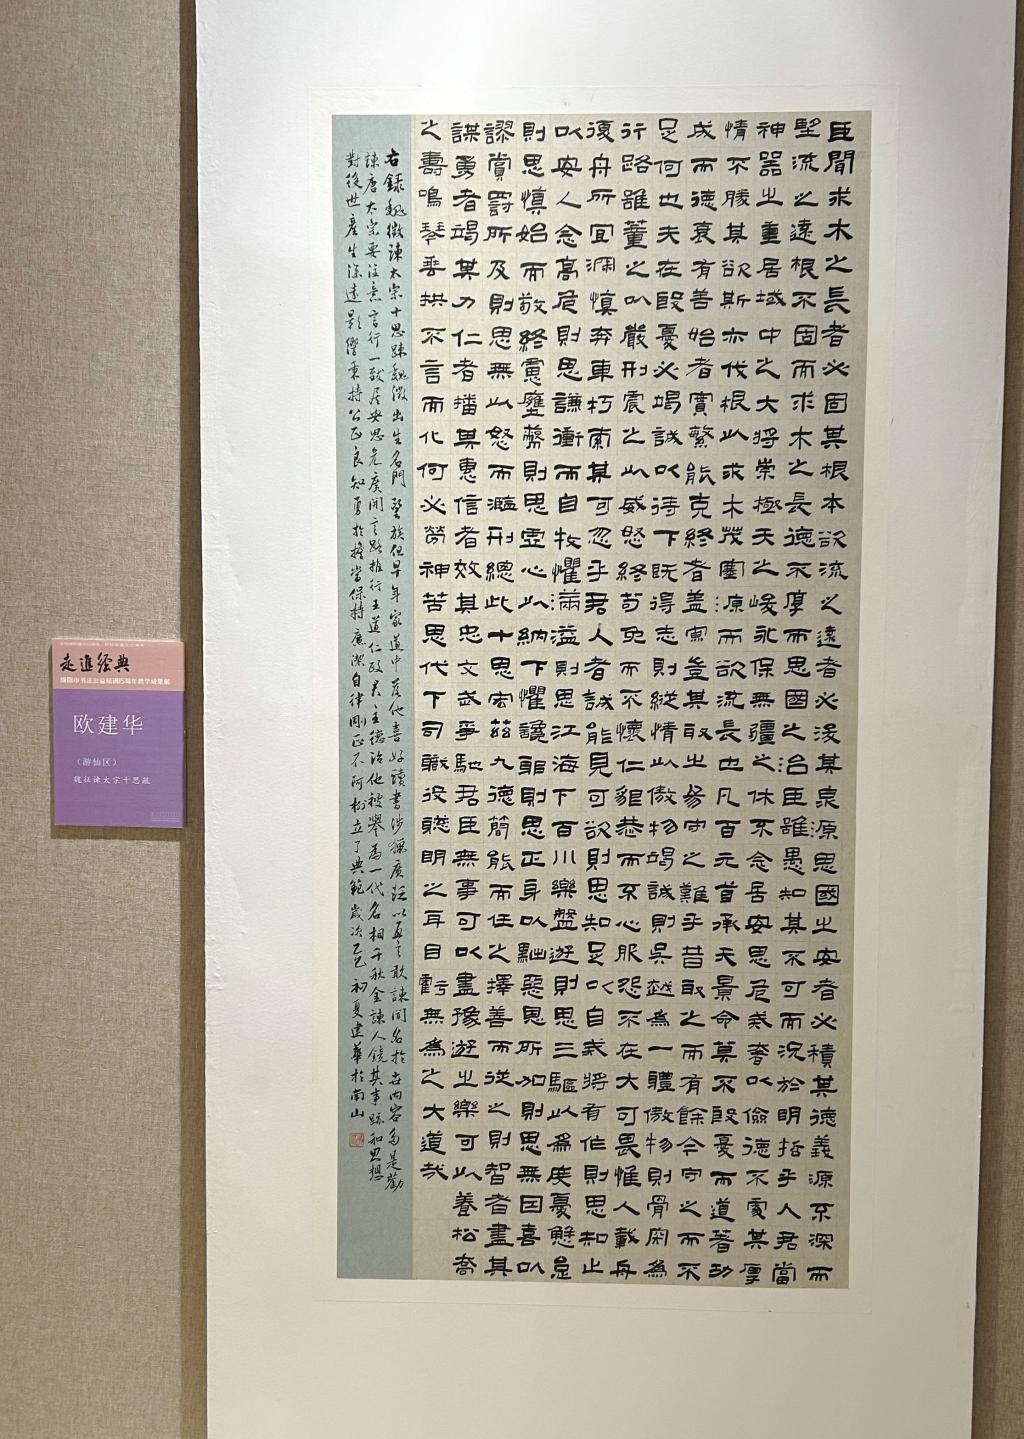 臣聞求木之長者必固其根本欲流之遠者必浚其泉源思國之安者必積其德義源不深而
望流之遠根不固而求木之長德不厚而思國之治臣雖愚知其不可而況於明哲乎人君當
神器之重居域中之大將崇極天之峻永保無疆之休不念居安思危戒奢以儉德不處其厚
情不勝其欲斯亦伐根以求木茂塞源而欲流長也凡百元首承天景命莫不殷憂而道著功
成而德衰有善始者實繁能克終者蓋寡豈其取之易守之難乎昔取之而有餘今守之而不
足何也夫在殷憂必竭誠以待下既得志則縱情以傲物竭誠則吳越為一體傲物則骨肉為
行路雖董之以嚴刑震之以威怒終苟免而不懷仁貌恭而不心服怨不在大可畏惟人載舟
復舟所宜深慎奔車朽索其可忽乎君人者誠能見可欲則思知足以自戒將有作則思知止
以安人念高危則思謙沖而自牧懼滿溢則思江海下百川樂盤遊則思三驅以為度憂懈怠
則思慎始而敬終慮壅蔽則思虛心以納下懼讒邪則思正身以黜惡思所加則思無因喜以
謬賞罰所及則思無以怒而濫刑總此十思宏茲九德簡能而任之擇善而從之則智者盡其
謀勇者竭其力仁者播其惠信者效其忠文武爭馳君臣無事可以盡豫遊之樂可以養松喬
之壽鳴琴垂拱不言而化何必勞神苦思代下司職役聰明之耳目虧無為之大道哉
右錄魏徵諫太宗十思疏魏徵出生名門望族但早年家道中落他喜好讀書涉獵廣泛以直言敢諫聞名於世內容多是勸
諫唐太宗要注意言行一致居安思危廣開言路推行王道仁政君主德治他被舉為一代名相千秋金諫人鏡其事跡和思想
對後世產生深遠影響秉持公正良知勇於擔當保持廉潔自律剛正不阿樹立了典範歲次乙巳初夏建華於南山
走進經典
绵阳市书法公益培训15周年教学成果展
欧建华
（游仙区）
魏征谏太宗十思疏